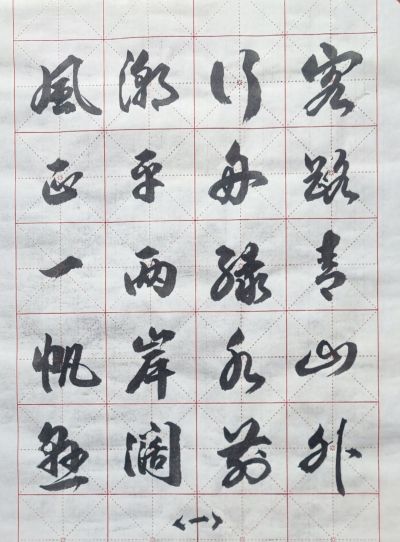 客路青山外
行舟绿水前
潮平两岸阔
風正一帆悬
<一>